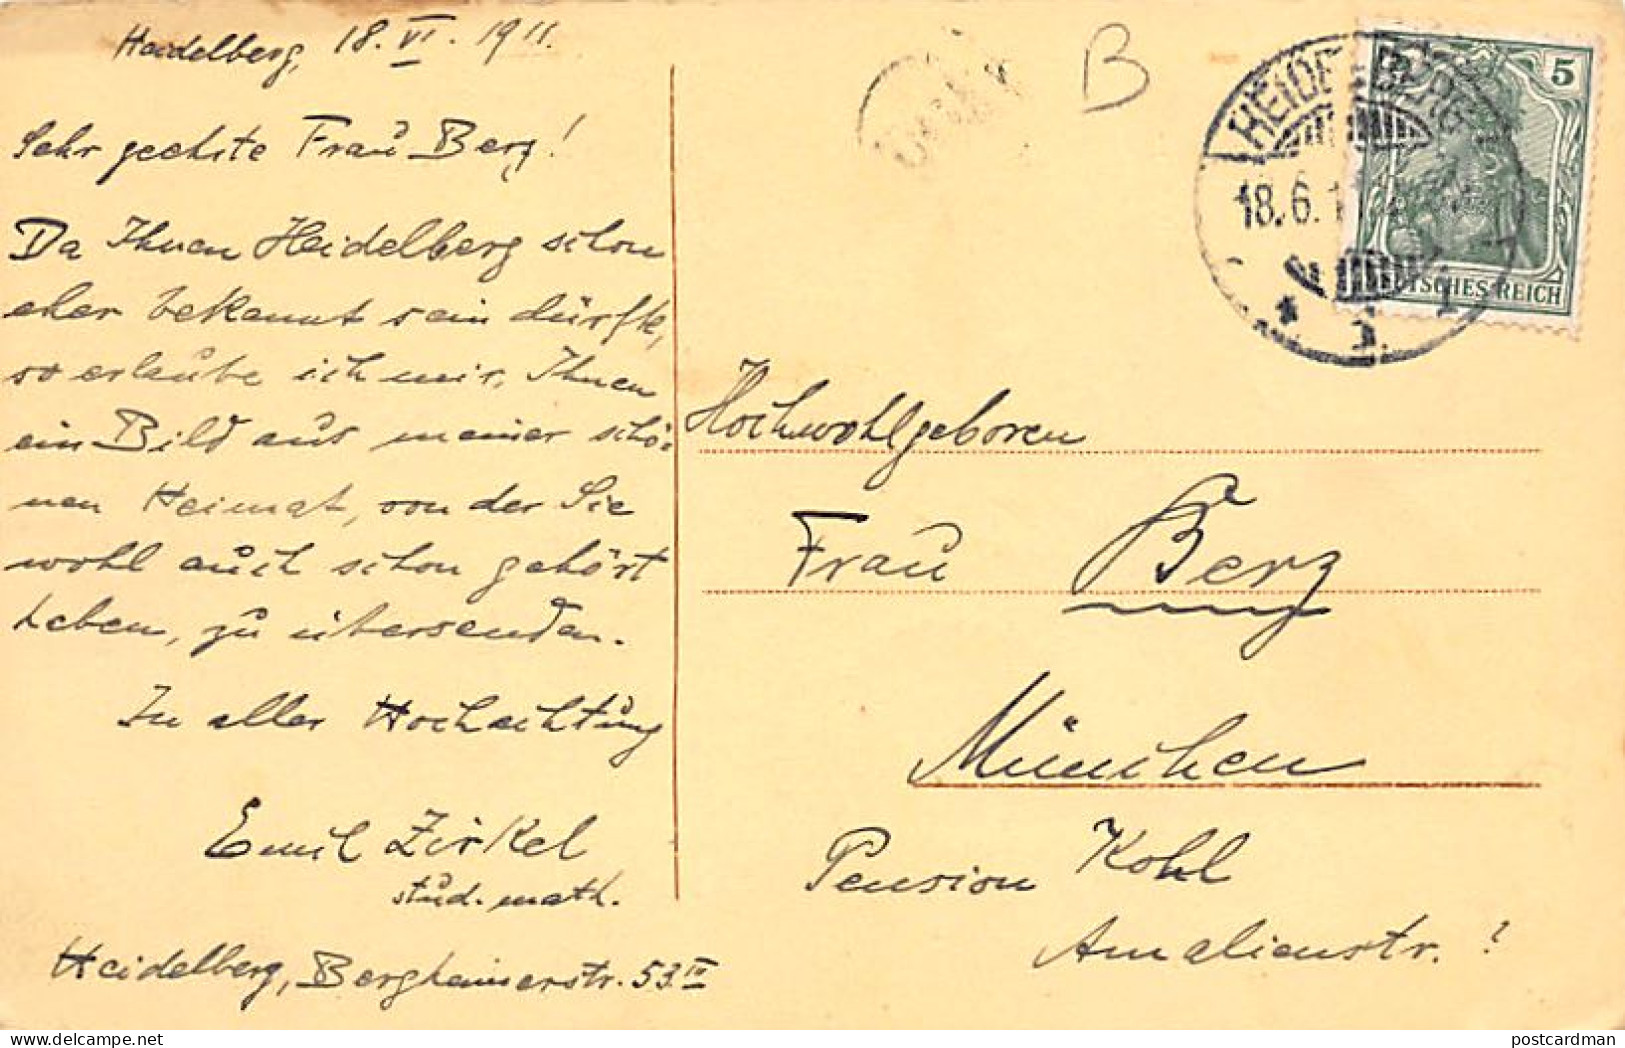 Heidelberg, 18. VI. 1911.
Sehr geehrte Frau Berg!
Da Ihnen Heidelberg schon
eher bekannt sein dürfte,
so erlaube ich mir, Ihnen
ein Bild aus meiner schö-
nen Heimat, von der Sie
wohl auch schon gehört
haben, zu übersenden.
In aller Hochachtung
Emil Zirkel
stud. math.
Heidelberg, Bergheimerstr. 53 III
B
HEIDELBERG
18.6.
5
DEUTSCHES REICH
Hochwohlgeboren
Frau Berg
München
Pension Kohl
Amalienstr. ?
postcardman